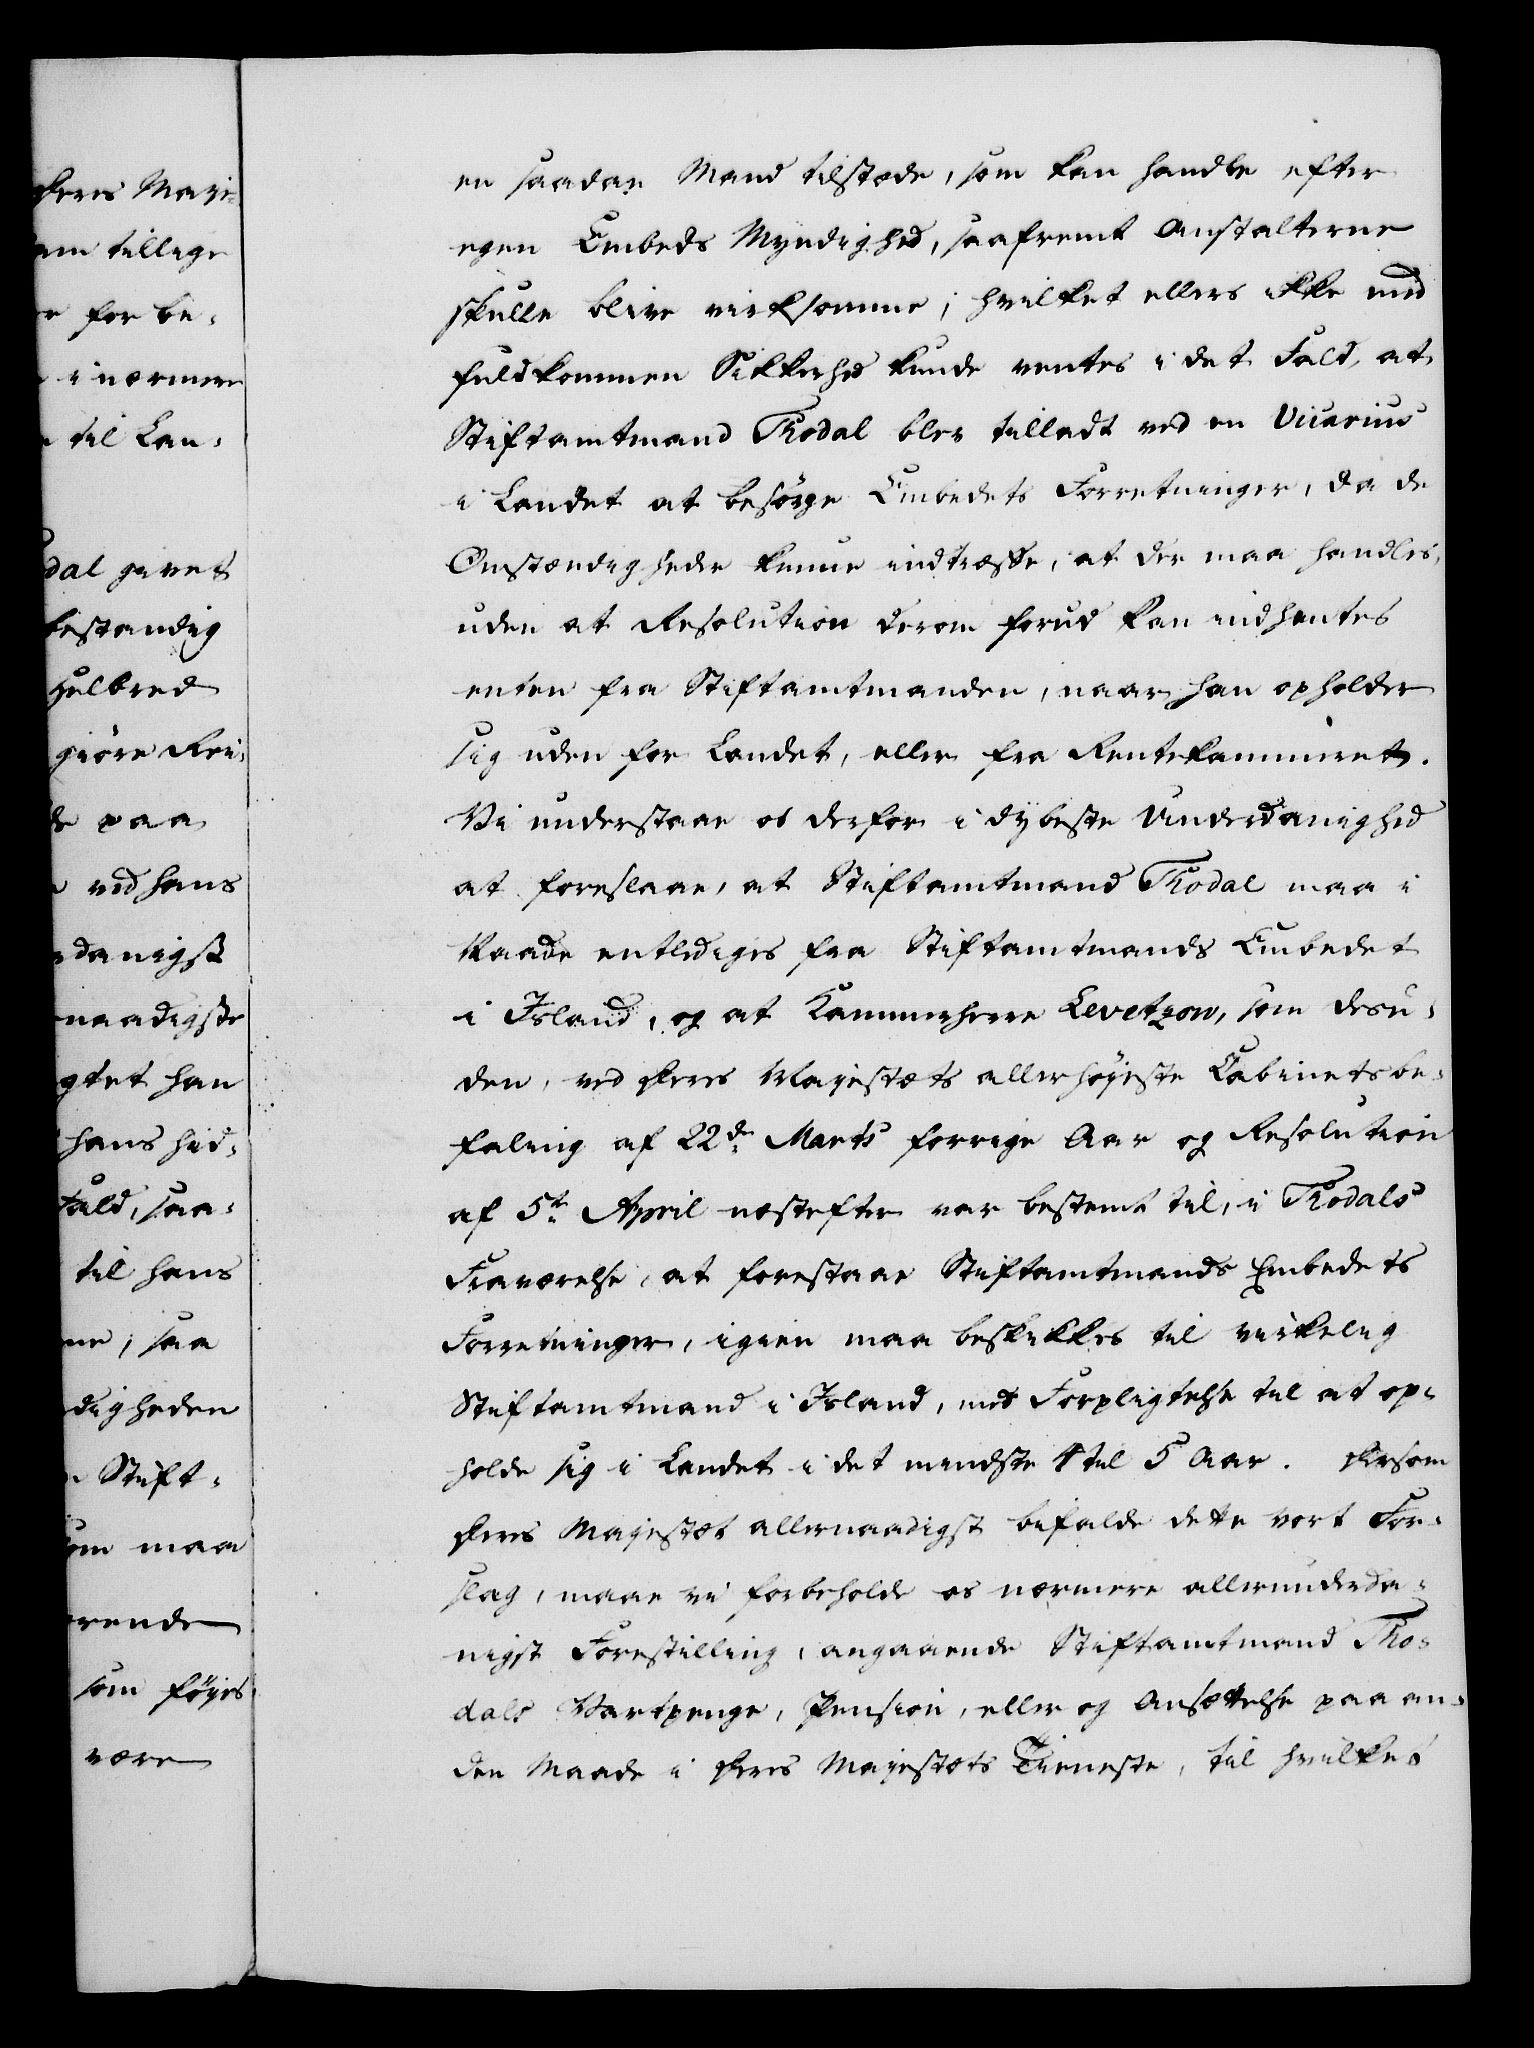 Deres Maje-
am tillige
r for be-
i nærmere
til Lan-
dal givet
bestandig
Helbred
giöre Rei-
de paa
ved hans
danigst
naadigste
gtet han
hans hid-
Fald, saa-
til hans
ne, saa
digheden
Stift-
om maa
rende
som föyes
være
en saadan Mand tilstæde, som kan handle efter
egen Embeds Myndighed, saafremt Anstalterne
skulle blive virksomme; hvilket ellers ikke med
fuldkommen Sikkerhed kunde ventes i det Fald, at
Stiftamtmand Thodal blev tilladt ved en Vicarius
i Landet at besörge Embedets Forretninger, da de
Omstændigheder kunne indtræffe, at der maa handles,
uden at Resolution derom forud kan indhentes
enten fra Stiftamtmanden, naar han opholder
sig uden for Landet, eller fra Rentekammeret.
Vi understaae os derfor i dybeste Underdanighed
at foreslaae, at Stiftamtmand Thodal maa i
Naade entlediges fra Stiftamtmands Embedet
i Island, og at Kammerherre Levetzow, som desu-
den, ved Deres Majestæts allerhöjeste Cabinetsbe-
faling af 22de Marts forrige Aar og Resolution
af 5te April næstefter var bestemt til, i Thodals
Fraværelse, at forestaae Stiftamtmands Embedets
Forretninger, igien maa beskikkes til virkelig
Stiftamtmand i Island, med Forpligtelse til at op-
holde sig i Landet i det mindste 4 til 5 Aar. Dersom
Deres Majestæt allernaadigst bifalde dette vort For-
slag, maae vi forbeholde os nærmere allerunderda-
nigst Forestilling, angaaende Stiftamtmand Tho-
dals Vartpenge, Pension, eller og Ansættelse paa an-
den Maade i Deres Majestæts Tieneste, til hvilket